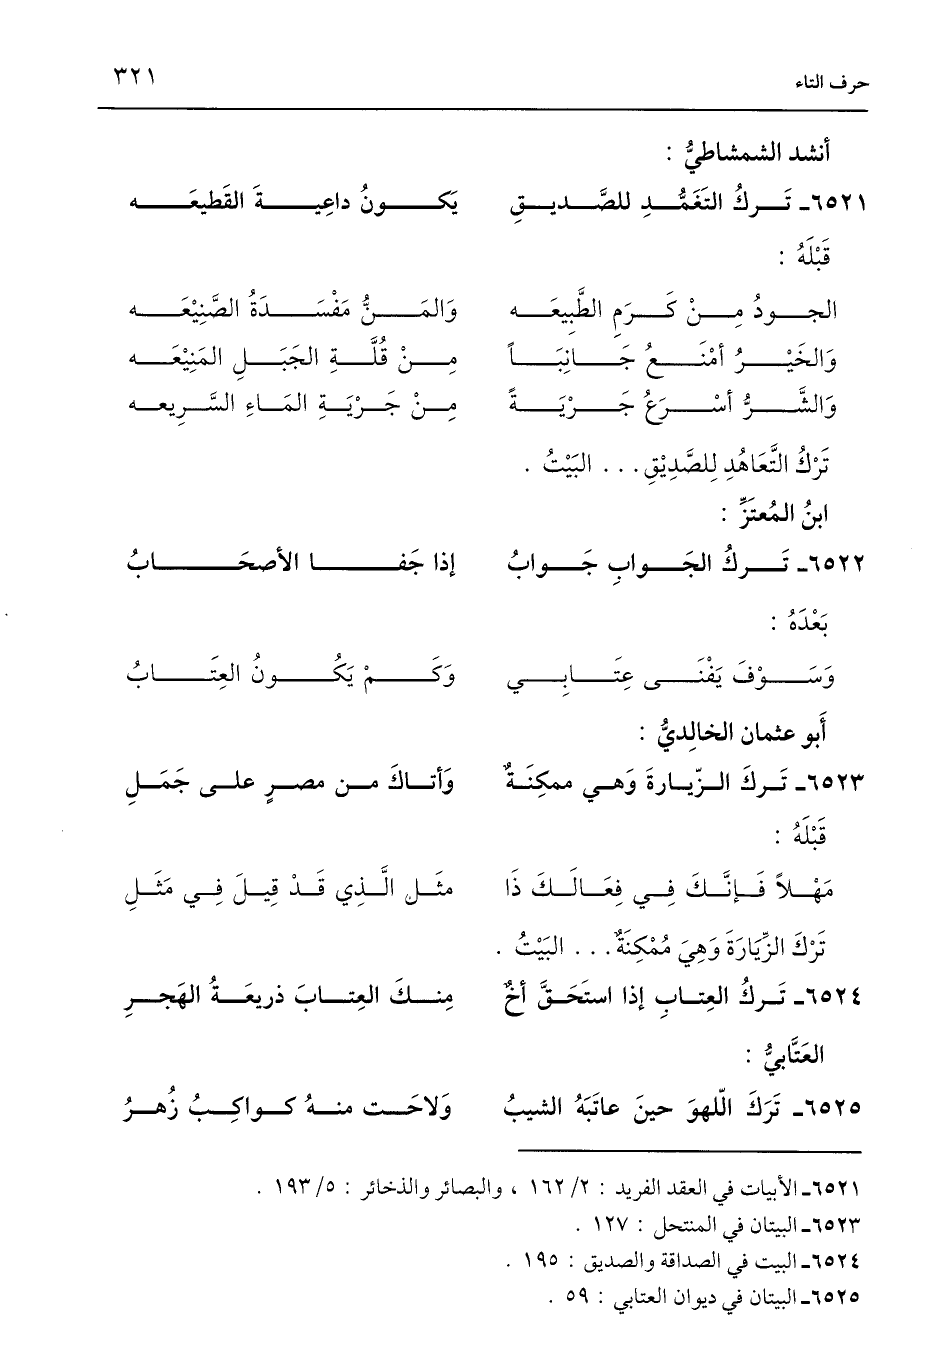 حرف التاء ٣٢١
أنشد الشمشاطيُّ :
٦٥٢١ـ تَركُ التَغَمُّدِ للصَّديقِ يَكونُ داعِيةَ القَطيعَه
قَبْلَهُ :
الجودُ مِنْ كَرَمِ الطَّبِيعَه وَالمَنُّ مَفْسَدَةُ الصَّنِيْعَه
وَالخَيْرُ أمْنَعُ جَانِبَاً مِنْ قُلَّةِ الجَبَلِ المَنِيْعَه
وَالشَّرُّ أسْرَعُ جَرْيَةً مِنْ جَرْيَةِ المَاءِ السَّرِيعه
تَرْكُ التَّعَاهُدِ لِلصَّدِيْقِ . . . البَيْتُ .
ابنُ المُعتَزِّ :
٦٥٢٢ـ تَركُ الجَوابِ جَوابُ إذا جَفا الأصحَابُ
بَعْدَهُ :
وَسَوْفَ يَفْنَى عِتَابِي وَكَمْ يَكُونُ العِتَابُ
أَبو عثمان الخالِديُّ :
٦٥٢٣ـ تَركَ الزّيارةَ وَهي ممكِنَةٌ وَأتاكَ من مصرٍ على جَمَلِ
قَبْلَهُ :
مَهْلاً فَإنَّكَ فِي فِعَالَكَ ذَا مثَل الَّذِي قَدْ قِيلَ فِي مَثَلِ
تَرْكَ الزِّيَارَةَ وَهِيَ مُمْكِنَةٌ . . . البَيْتُ .
٦٥٢٤ـ تَركُ العِتابِ إذا استَحَقَّ أخٌ مِنكَ العِتابَ ذريعَةُ الهَجرِ
العَتَّابيُّ :
٦٥٢٥ـ تَرَكَ اللّهوَ حينَ عاتَبَهُ الشيبُ وَلاحَت منهُ كواكِبُ زُهرُ
٦٥٢١ـ الأبيات في العقد الفريد : ٢/ ١٦٢ ، والبصائر والذخائر : ٥/ ١٩٣ .
٦٥٢٣ـ البيتان في المنتحل : ١٢٧ .
٦٥٢٤ـ البيت في الصداقة والصديق : ١٩٥ .
٦٥٢٥ـ البيتان في ديوان العتابي : ٥٩ .